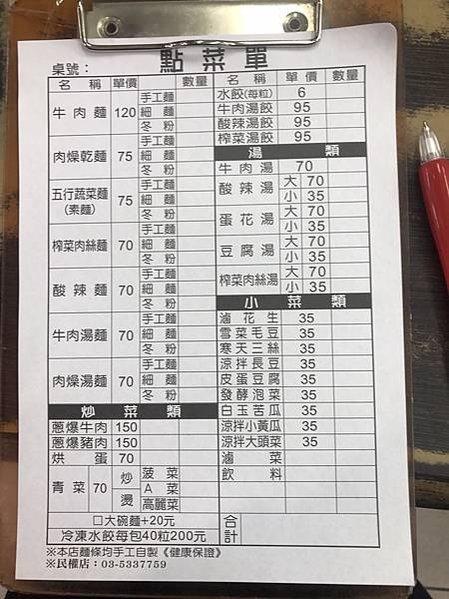 點菜單
桌號：
名稱 單價 數量
牛肉麵 120 手工麵 細麵 冬粉
肉燥乾麵 75 手工麵 細麵 冬粉
五行蔬菜麵(素麵) 75 手工麵 細麵 冬粉
榨菜肉絲麵 70 手工麵 細麵 冬粉
酸辣麵 70 手工麵 細麵 冬粉
牛肉湯麵 70 手工麵 細麵 冬粉
肉燥湯麵 70 手工麵 細麵 冬粉
炒菜類
蔥爆牛肉 150
蔥爆豬肉 150
烘蛋 70
青菜 70 炒 燙 菠菜 A菜 高麗菜
□大碗麵+20元
冷凍水餃每包40粒200元
名稱 單價 數量
水餃(每粒) 6
牛肉湯餃 95
酸辣湯餃 95
榨菜湯餃 95
湯類
牛肉湯 70
酸辣湯 大 70 小 35
蛋花湯 大 70 小 35
豆腐湯 大 70 小 35
榨菜肉絲湯 大 70 小 35
小菜類
滷花生 35
雪菜毛豆 35
寒天三絲 35
涼拌長豆 35
皮蛋豆腐 35
發酵泡菜 35
白玉苦瓜 35
涼拌小黃瓜 35
涼拌大頭菜 35
滷菜
飲料
合計
※本店麵條均手工自製《健康保證》
※民權店：03-5337759